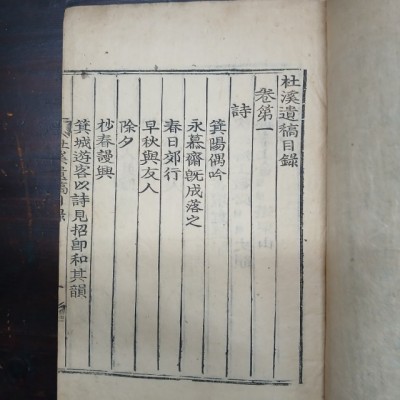 杜溪遺稿目錄
卷第一
詩
箕陽偶吟
永慕齋旣成落之
春日郊行
早秋與友人
除夕
杪春謾興
箕城遊客以詩見招卽和其韻
杜溪遺稿目錄 一